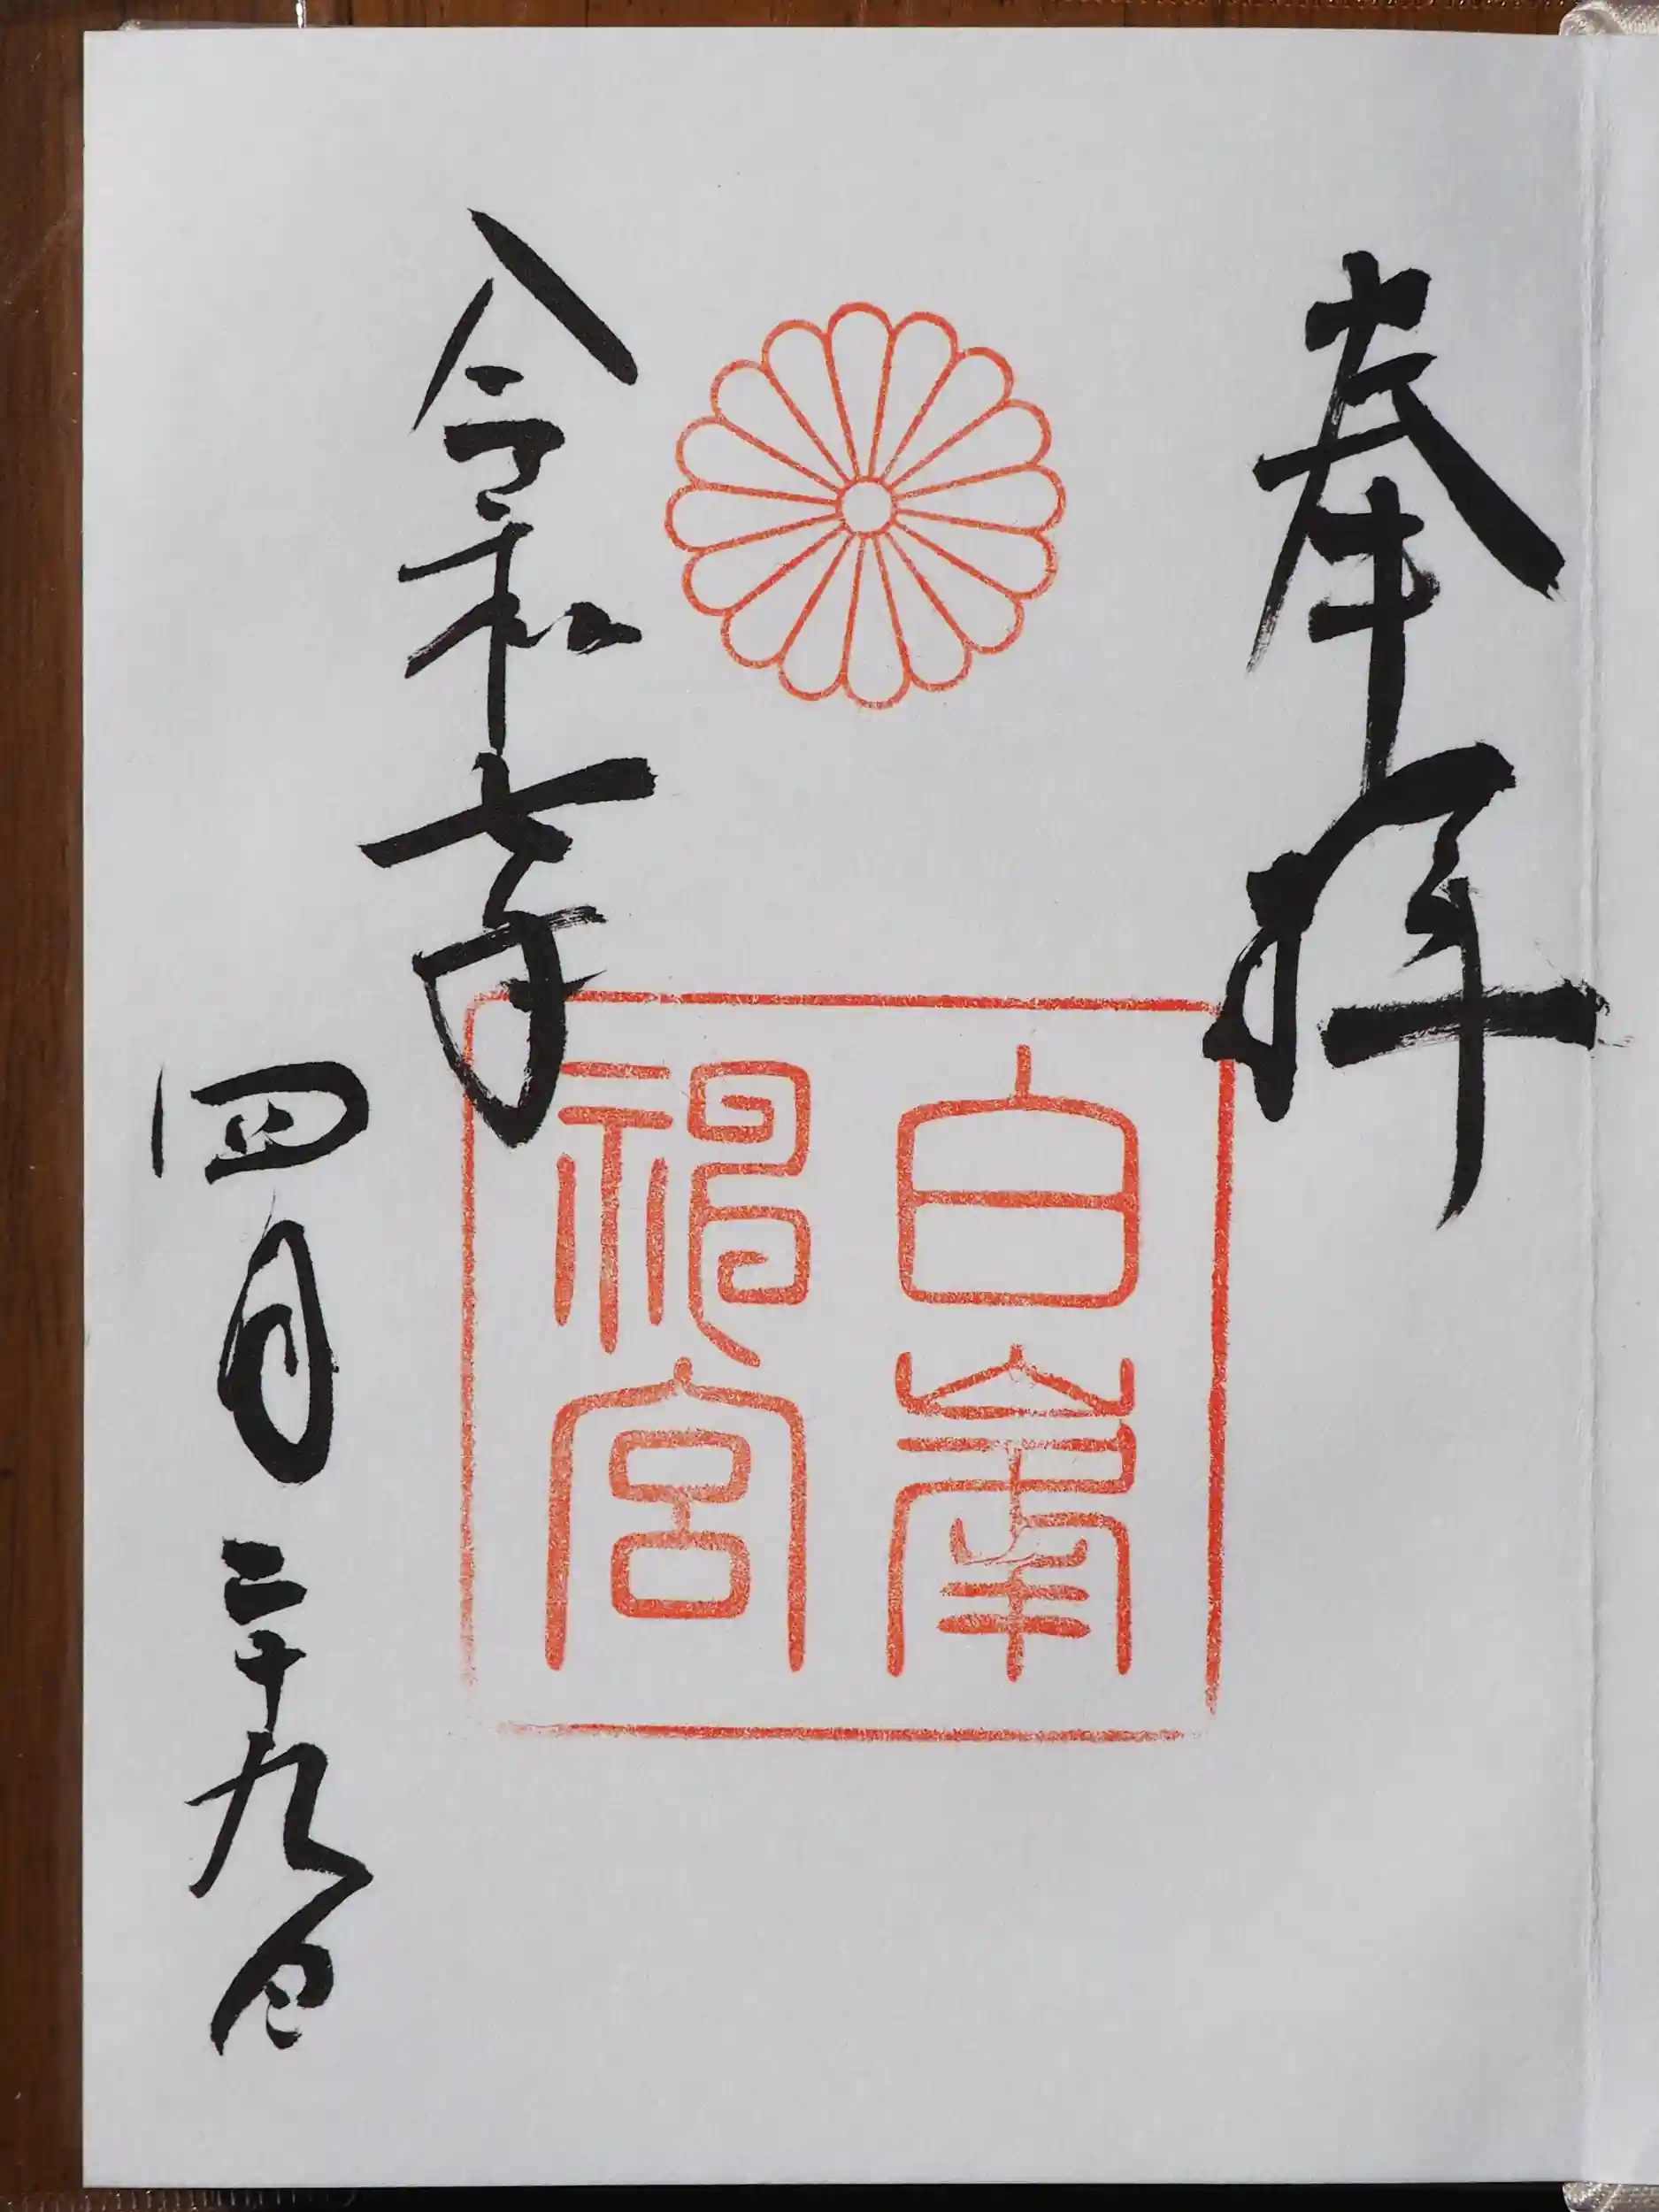 奉拝
白峯
神宮
令和七年
四月二十九日